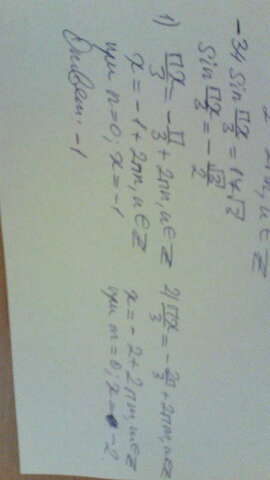 -34 Sin πx/3 = 17√3
Sin πx/3 = -√3/2
1) πx/3 = -π/3 + 2πn, n∈Z
x = -1 + 2πn, n∈Z
при n=0; x=-1
Ответ: -1
2) πx/3 = -2π/3 + 2πm, m∈Z
x = -2 + 2πm, m∈Z
при m=0; x= -2